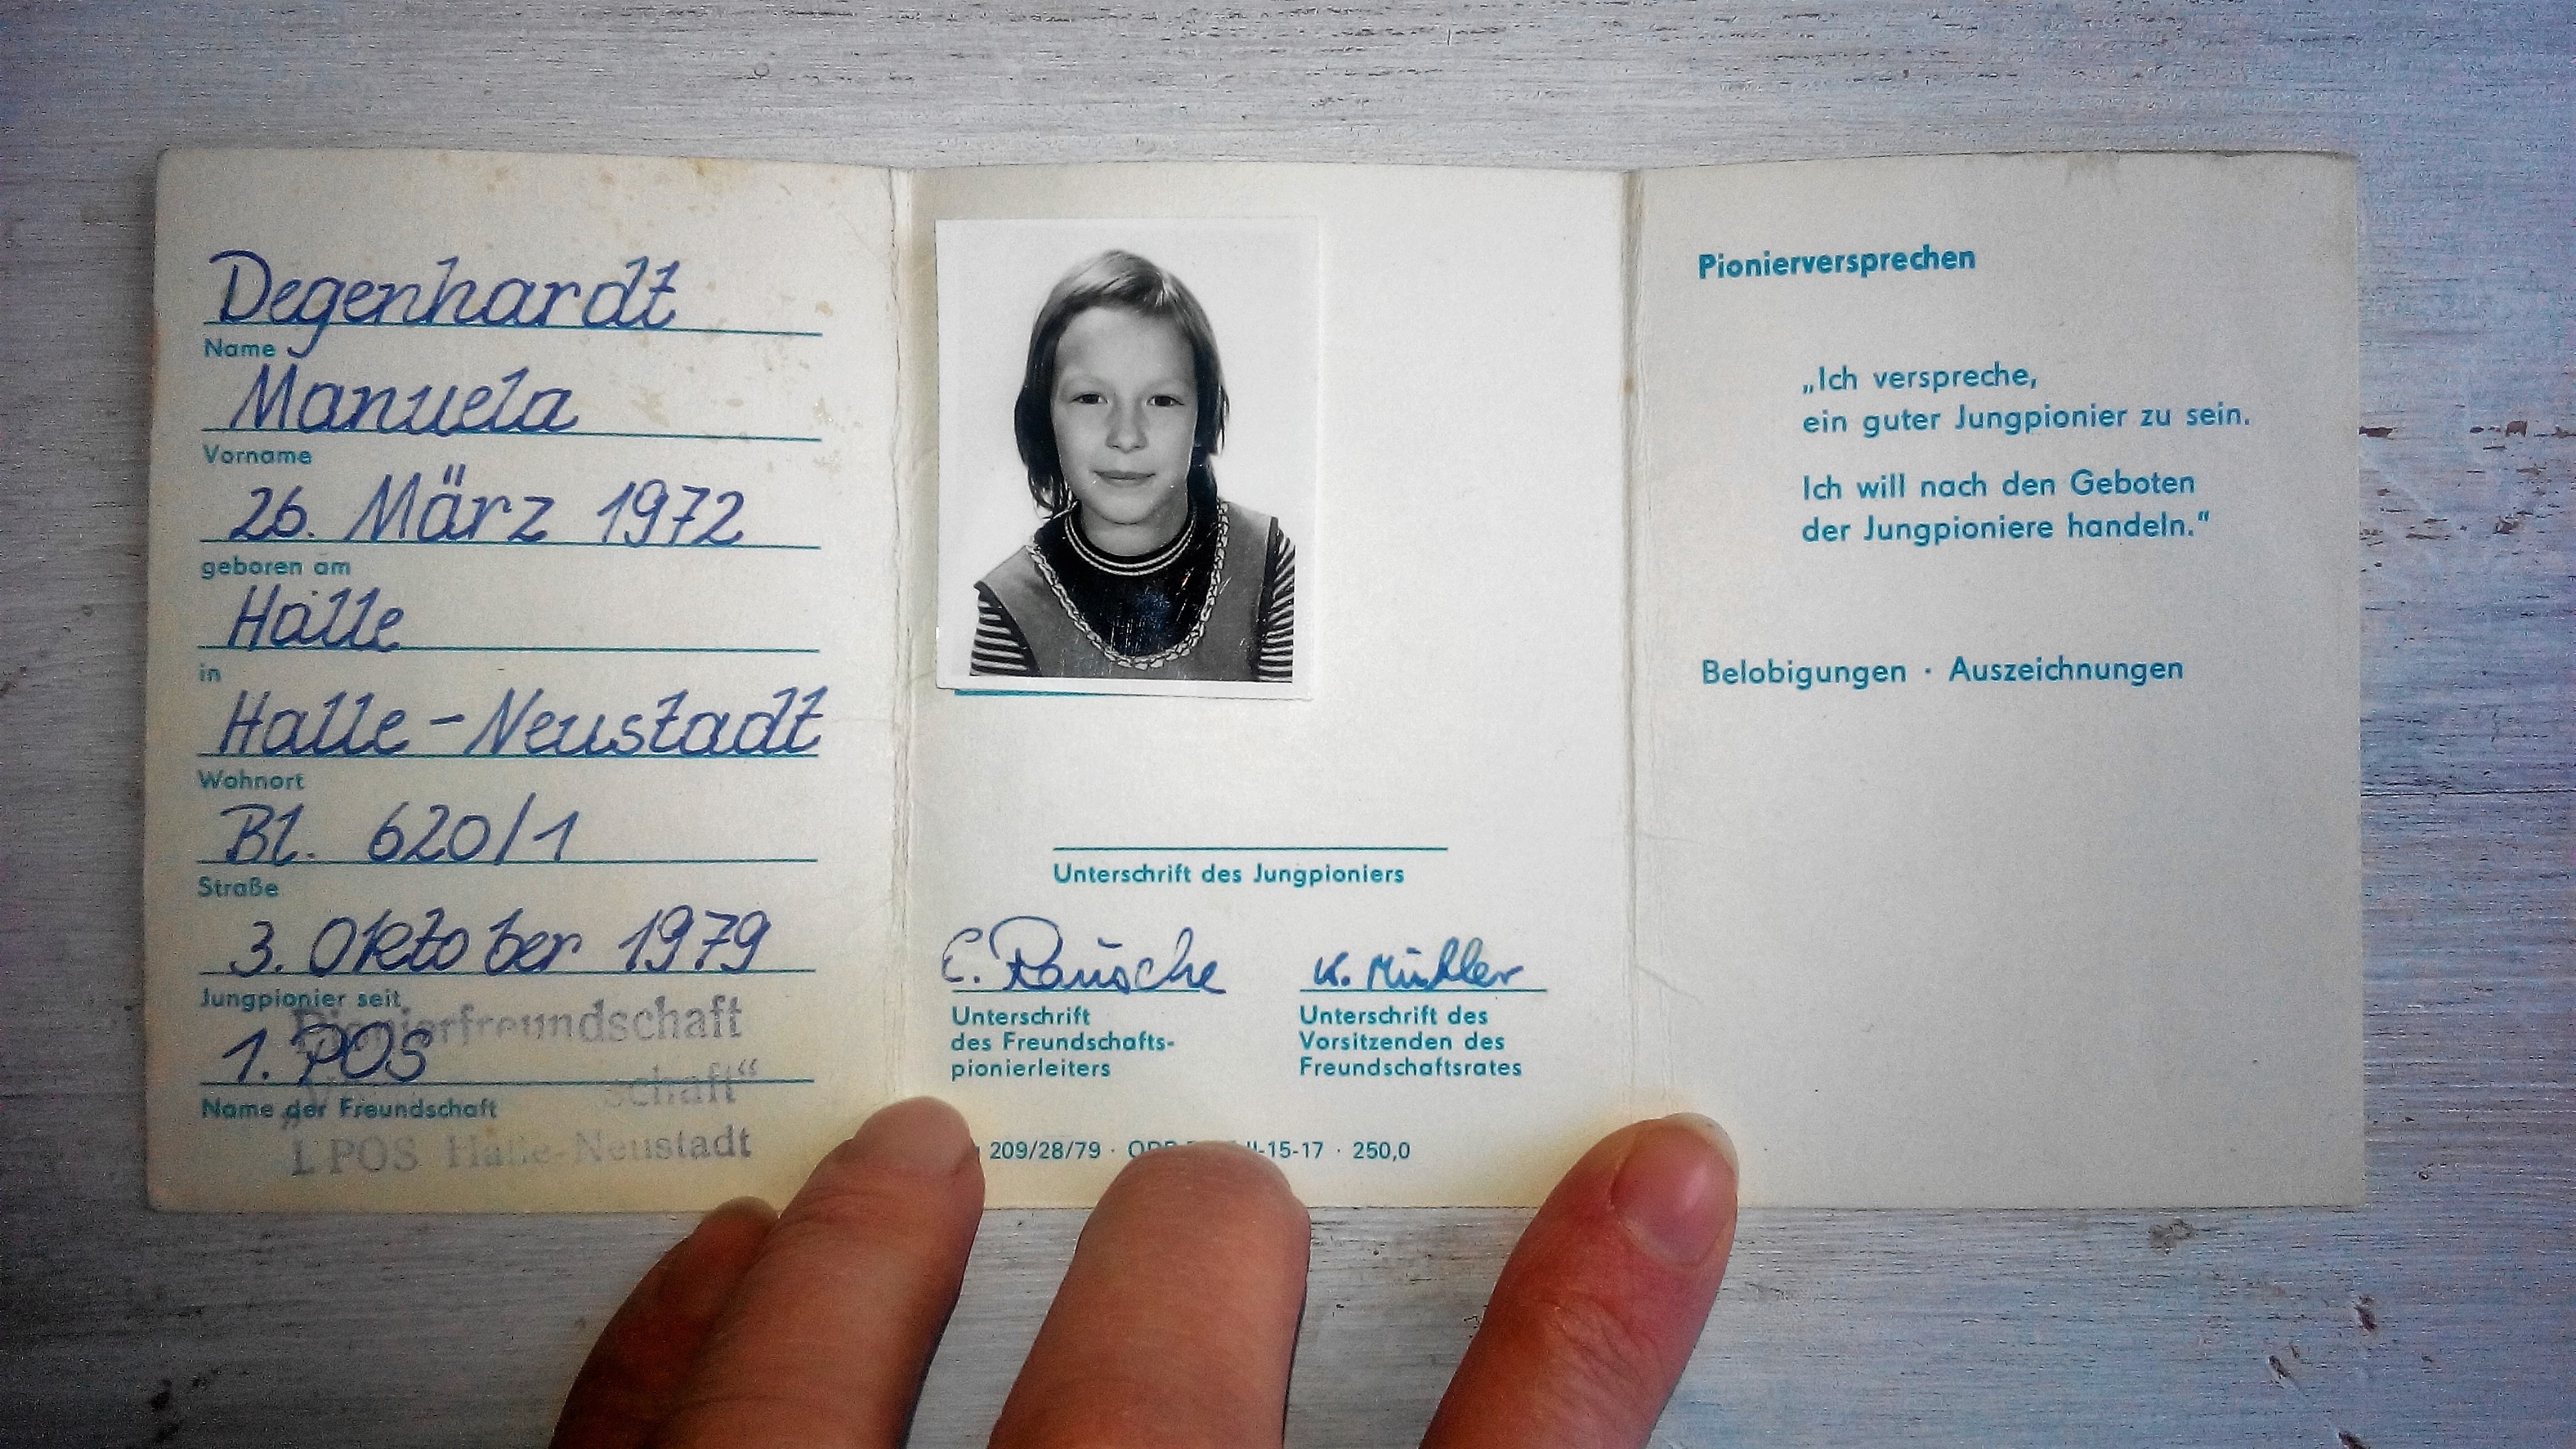 Degenhardt
Name
Manuela
Vorname
26. März 1972
geboren am
Halle
in
Halle-Neustadt
Wohnort
Bl. 620/1
Straße
3. Oktober 1979
Jungpionier seit
Pionierfreundschaft
1. POS
schaft“
Name der Freundschaft
1. POS Halle-Neustadt
Unterschrift des Jungpioniers
E. Rausche
Unterschrift
des Freundschafts-
pionierleiters
K. Mühler
Unterschrift des
Vorsitzenden des
Freundschaftsrates
209/28/79 · II-15-17 · 250,0
Pionierversprechen
„Ich verspreche,
ein guter Jungpionier zu sein.
Ich will nach den Geboten
der Jungpioniere handeln.“
Belobigungen · Auszeichnungen